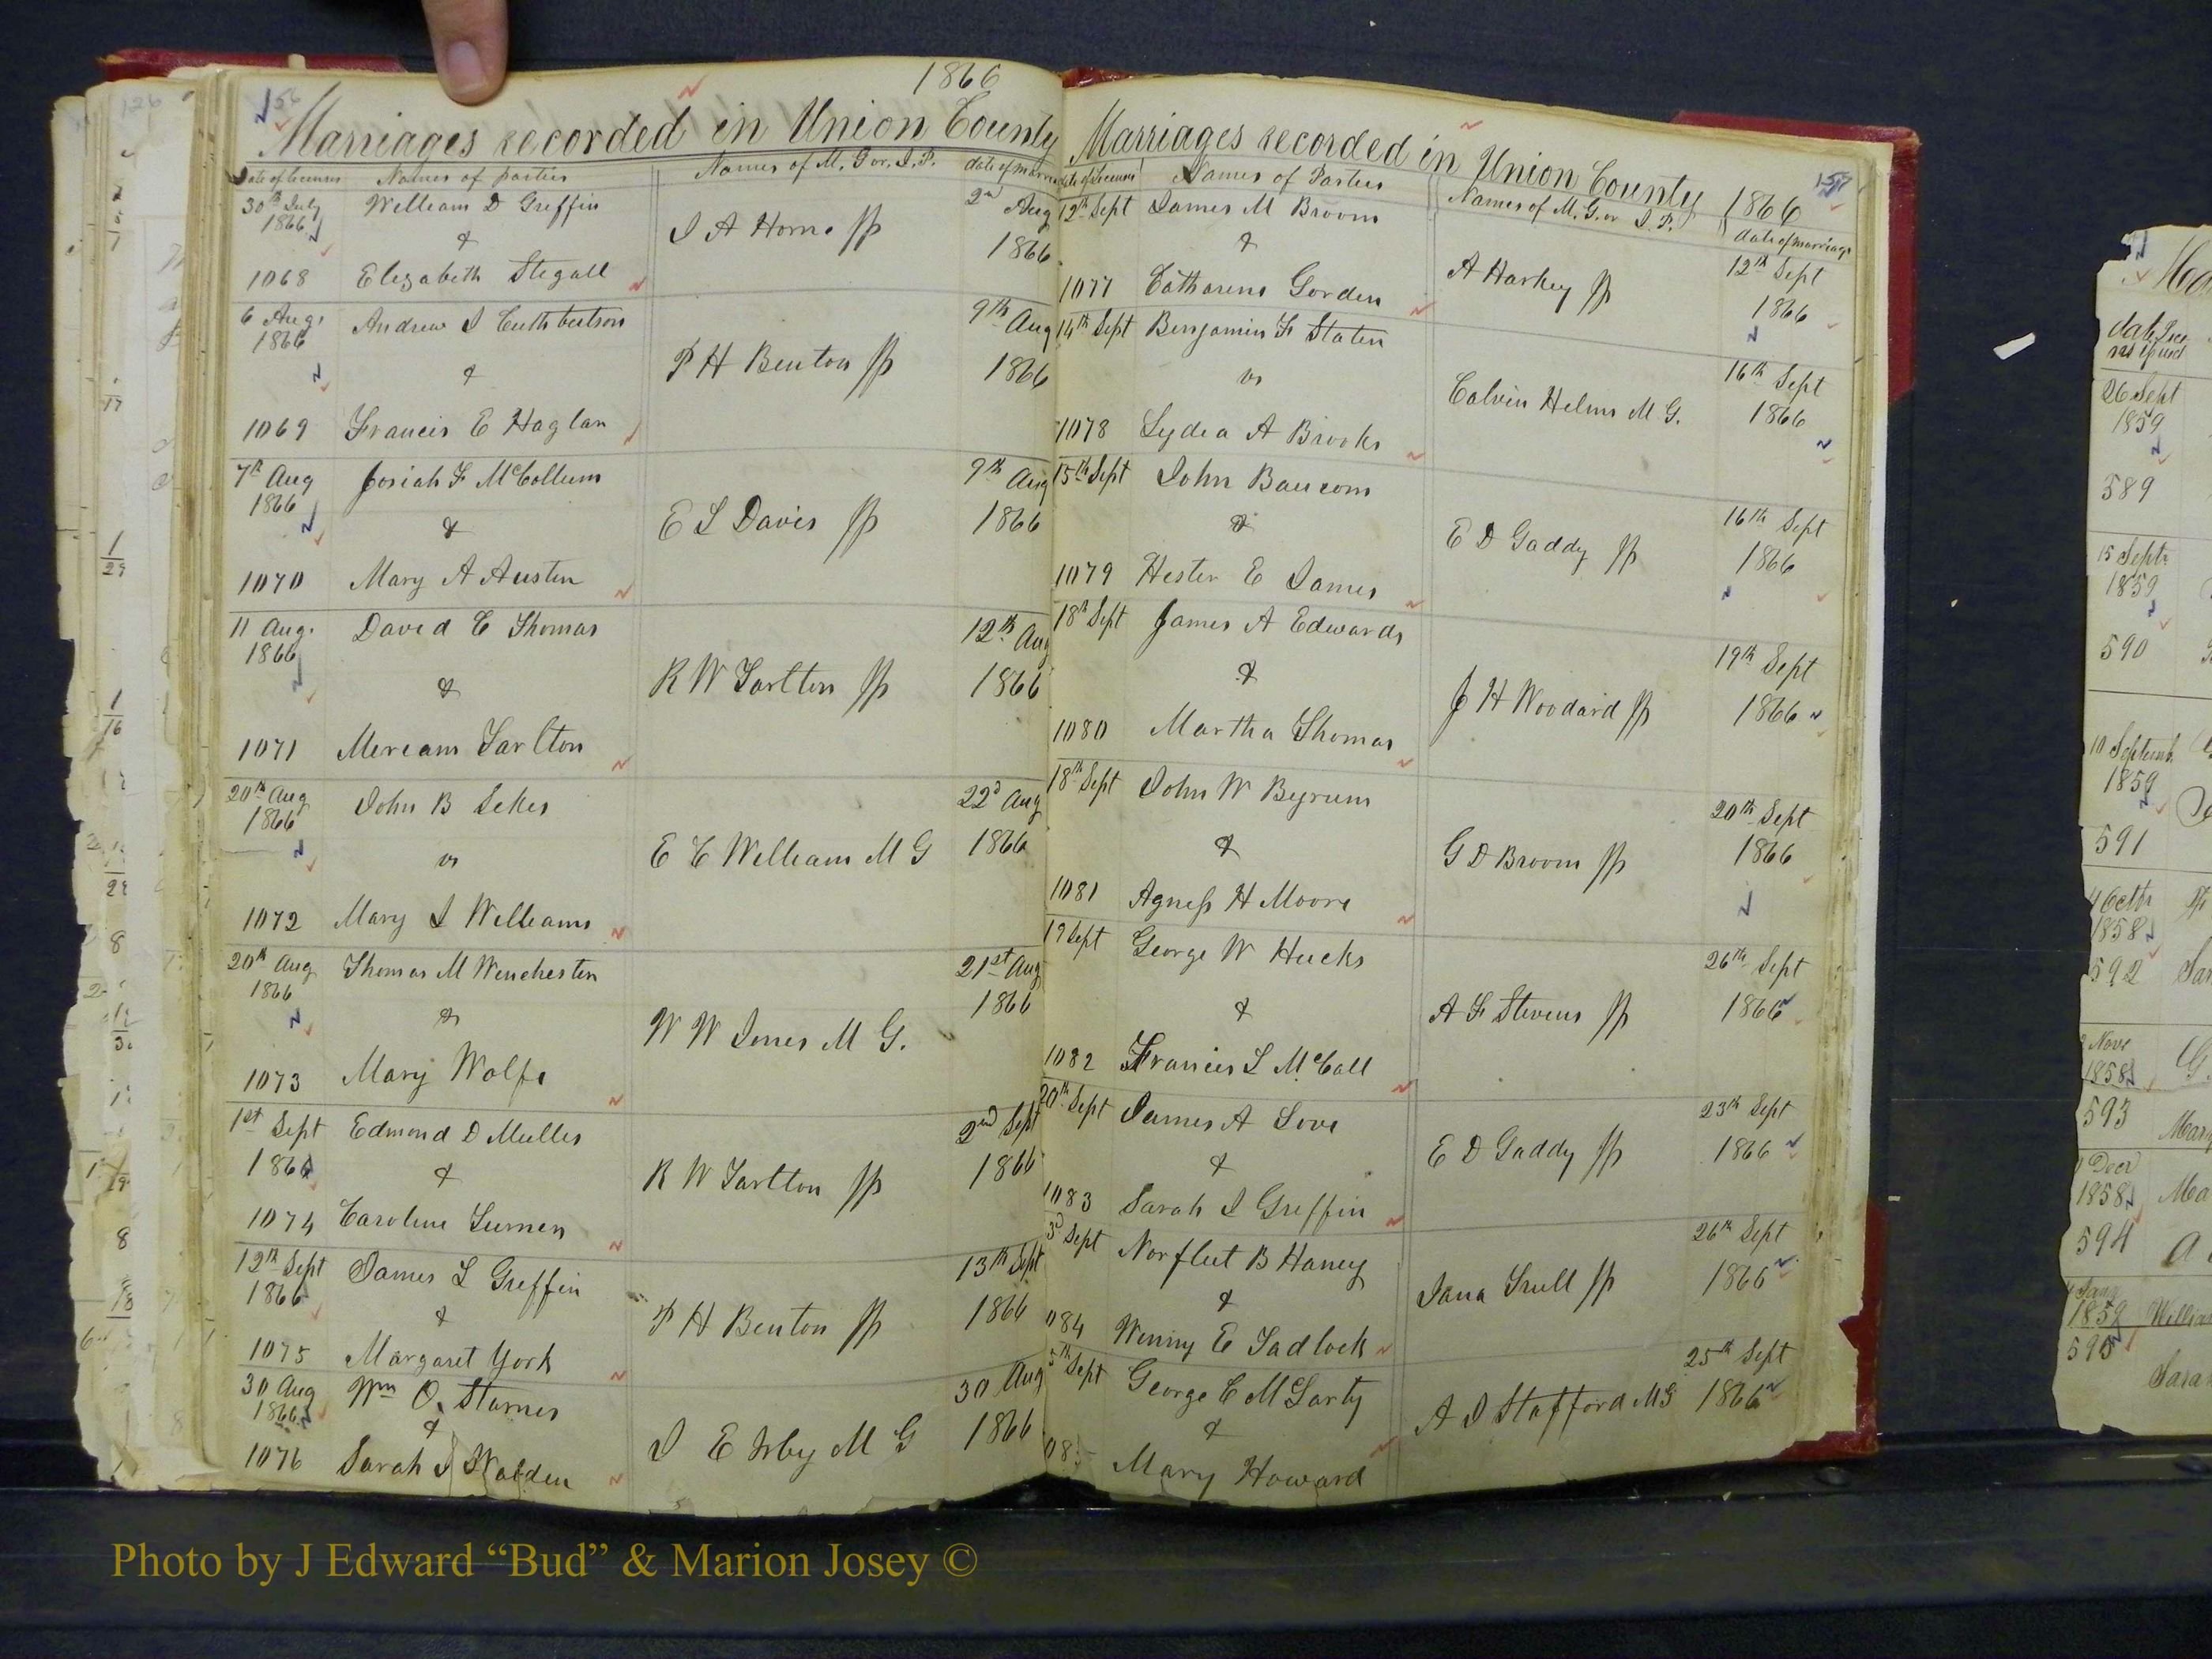 1866
156
Marriages recorded in Union County
Date of Licenses Names of parties Names of M. G or J. P. date of marr
30th July William D Griffin 2nd Aug
1866 & J A Horne JP 1866
1068 Elizabeth Stegall
6 Aug. Andrew J Cuthbertson 9th Aug
1866 & P H Benton JP 1866
1069 Francis E Haglar
7th Aug Josiah F McCollum 9th Aug
1866 & E L Davis JP 1866
1070 Mary A Austin
11 Aug. David C Thomas 12th Aug
1866 & R W Tarlton JP 1866
1071 Meream Tarlton
20th Aug John B Sikes 22d Aug
1866 E C William M G 1866
1072 Mary J Williams
20th Aug Thomas M Winchester 21st Aug
1866 & W W Jones M G.
1866
1073 Mary Wolfe
1st Sept Edmond D Mullis 2nd Sept
1866 & R W Tarlton JP 1866
1074 Caroline Turner
12th Sept James L Griffin 13th Sept
1866 & P H Benton JP 1866
1075 Margaret York
30 Aug Wm O. Starnes 30 Aug
1866 & J E Irby M G 1866
1076 Sarah J Walden
Marriages recorded in Union County 1866
157
date of Licenses Names of Parties Names of M. G. or J. P. date of marriage
12th Sept James M Broom 12th Sept
& A Harkey JP 1866
1077 Catharine Gorden
14th Sept Benjamin F Staten 16th Sept
Calvin Helms M G. 1866
1078 Lydia A Brooks
15th Sept John Baucom 16th Sept
& E D Gaddy JP 1866
1079 Hester E James
18th Sept James A Edwards 19th Sept
& J H Woodard JP 1866
1080 Martha Thomas
18th Sept John W Byrum 20th Sept
& G D Broom JP 1866
1081 Agness H Moore
19 Sept George W Hucks 26th Sept
& A F Stevens JP 1866
1082 Francis L McCall
20th Sept James A Love 23th Sept
& E D Gaddy JP 1866
1083 Sarah J Griffin
3d Sept Norfleet B Haney 26th Sept
& Jana Trull JP 1866
084 Winny E Tadlock
5th Sept George C McLarty 25th Sept
& A J Stafford MG 1866
08 Mary Howard
26 Sept
1859
589
15 Septr
1859
590
10 Septemb
1859
591
4 Octr
1858
592
Nove
1858
593
Decr
1858
594
1859
595
Photo by J Edward “Bud” & Marion Josey ©